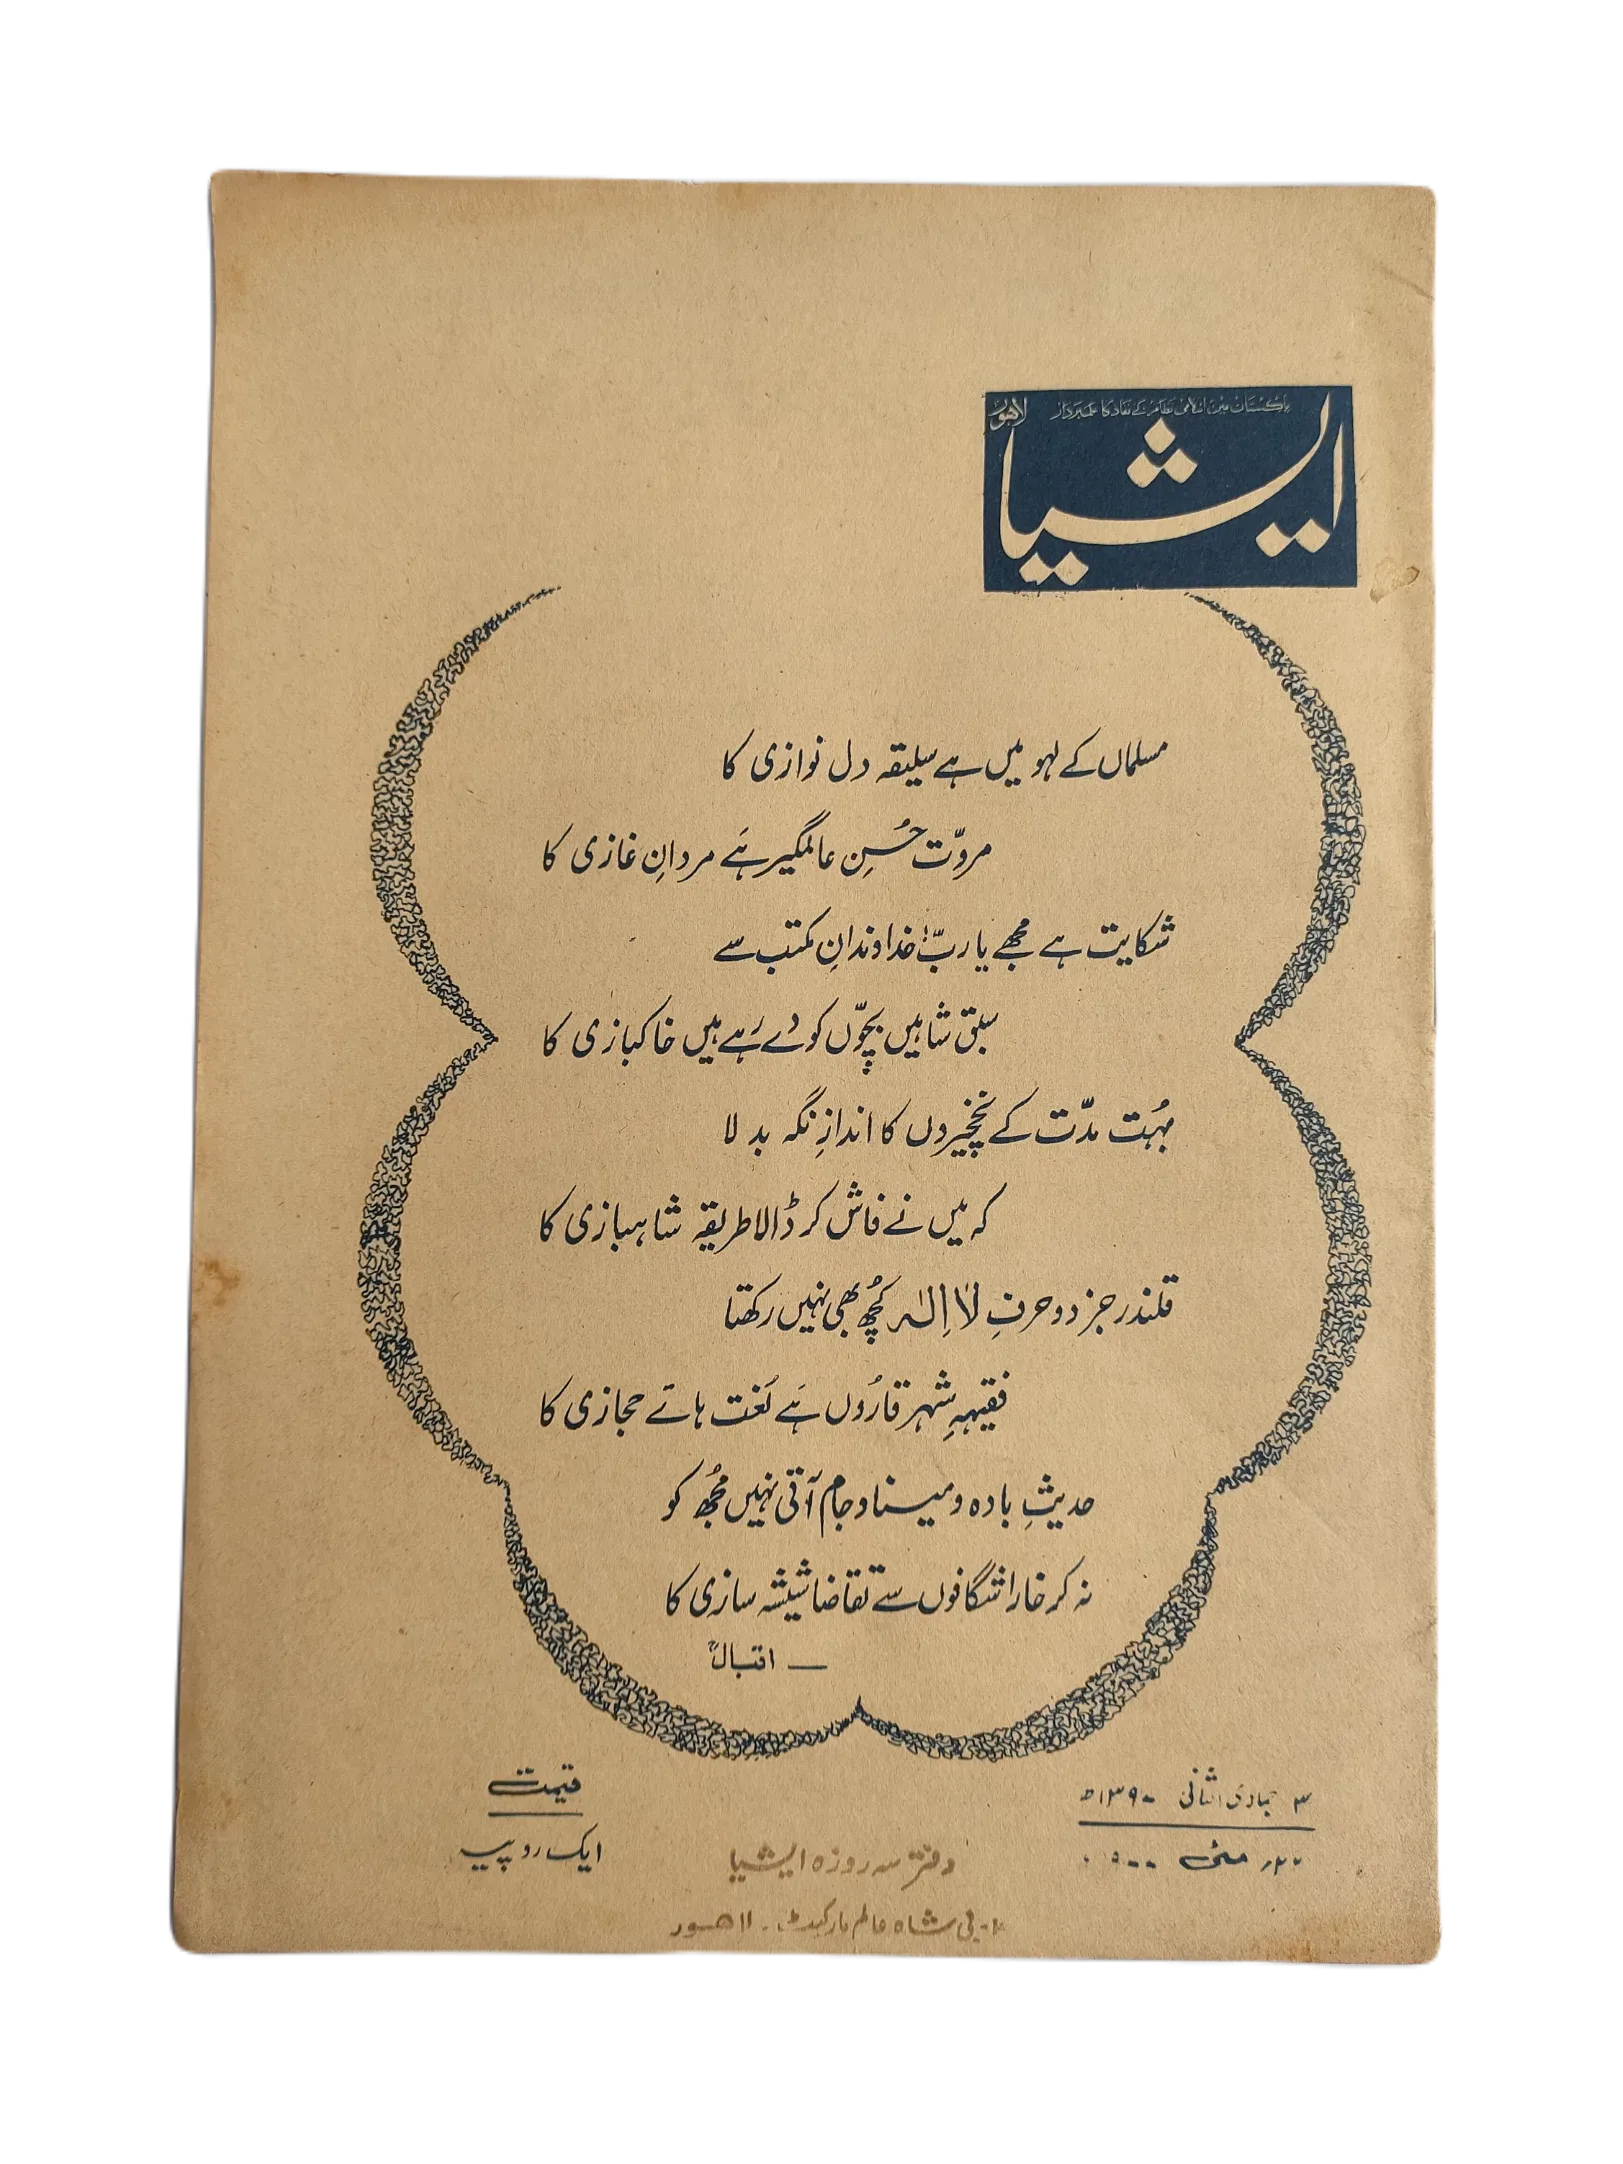 پاکستان میں اسلامی نظام کے نفاذ کا علمبردار
لاہور
ایشیا
مسلماں کے لہو میں ہے سلیقہ دل نوازی کا
مروّت حُسنِ عالمگیر ہَے مردانِ غازی کا
شکایت ہے مجھے یا ربّ! خداوندانِ مکتب سے
سبق شاہیں بچّوں کو دے رہے ہیں خاکبازی کا
بہُت مدّت کے نخچیروں کا اندازِ نگہ بدلا
کہ میں نے فاش کر ڈالا طریقہ شاہبازی کا
قلندر جز دو حرفِ لا اِلٰہ کُچھ بھی نہیں رکھتا
فقیہہِ شہر قارُوں ہَے لُغت ہائے حجازی کا
حدیثِ بادہ و مینا و جام آتی نہیں مُجھ کو
نہ کر خارا شگافوں سے تقاضا شیشہ سازی کا
— اقبالؒ
۳ جمادی الثانی ۱۳۹۰ھ
مئی
قیمت
ایک روپیہ
دفتر سہ روزہ ایشیا
شاہ عالم مارکیٹ ۔ لاہور